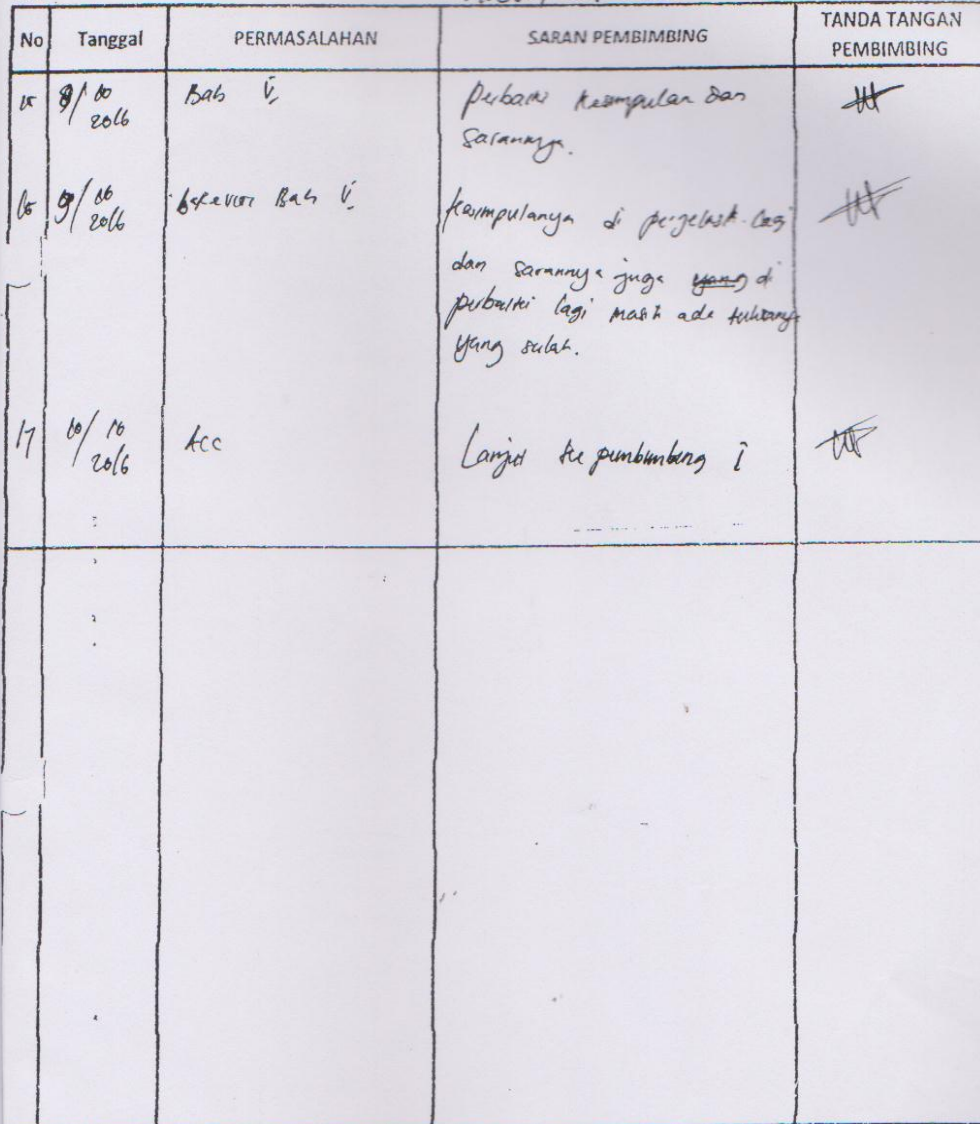 No Tanggal PERMASALAHAN SARAN PEMBIMBING TANDA TANGAN PEMBIMBING
15 8/10 2016 Bab V, Perbaiki kesimpulan dan
sarannya.
16 9/10 2016 Bab V, Kesimpulanya di perjelask lagi
dan sarannya juga yang di
perbaiki lagi masih ada tulisanya
yang salah.
17 10/10 2016 Acc Lanjut ke pembimbing I